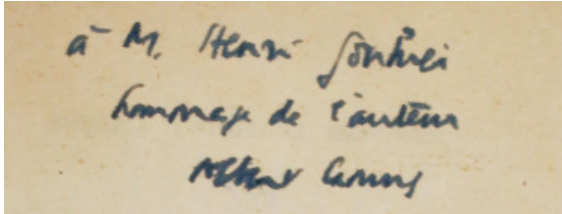 à M. Henri
hommage de l'auteur
Albert Camus